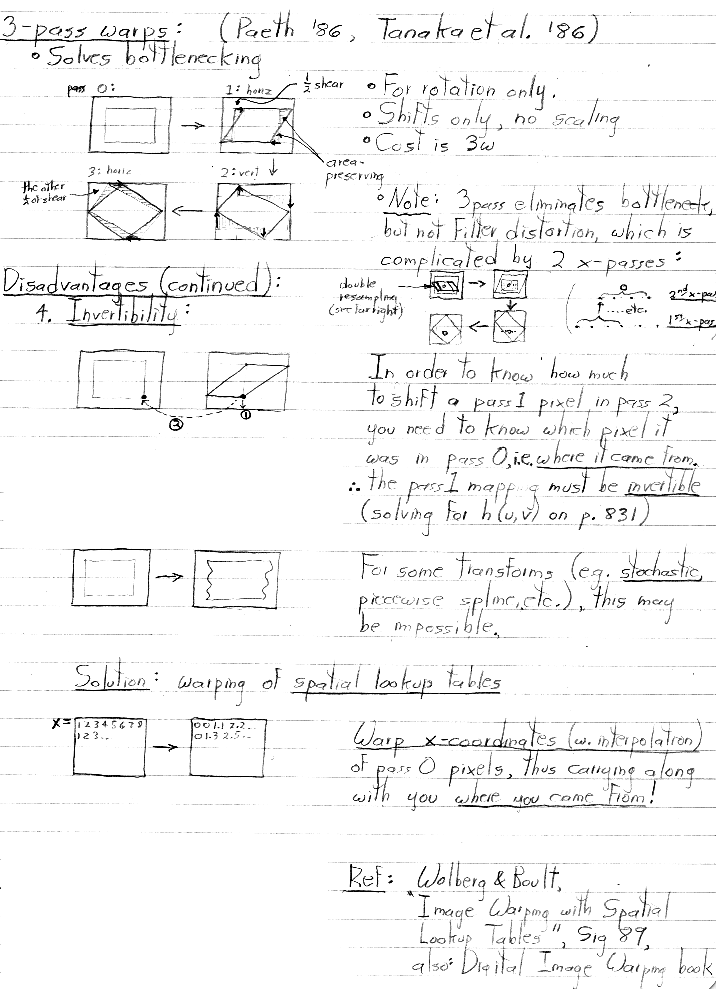 3-pass warps: (Paeth '86, Tanaka et al. '86)
• Solves bottlenecking
pass 0:
1: horiz
½ shear
• For rotation only.
• Shifts only, no scaling
• Cost is 3w
area-preserving
3: horiz
2: vert
the other ½ of shear
• Note: 3pass eliminates bottleneck,
but not Filter distortion, which is
complicated by 2 x-passes:
double
resampling
(similar right)
2nd x-pass
...etc.
1st x-pass
Disadvantages (continued):
4. Invertibility:
①
②
In order to know how much
to shift a pass 1 pixel in pass 2,
you need to know which pixel it
was in pass 0, i.e. where it came from.
∴ the pass 1 mapping must be invertible
(solving for h(u,v) on p. 831)
For some transforms (eg. stochastic,
piecewise spline, etc.), this may
be impossible.
Solution: warping of spatial lookup tables
x= 1 2 3 4 5 6 7 8
1 2 3 ..
0 0 1.1 2.2..
0 1.3 2.5...
Warp x-coordinates (w. interpolation)
of pass 0 pixels, thus carrying along
with you where you came from!
Ref: Wolberg & Boult,
"Image Warping with Spatial
Lookup Tables", Sig 89,
also: Digital Image Warping book,